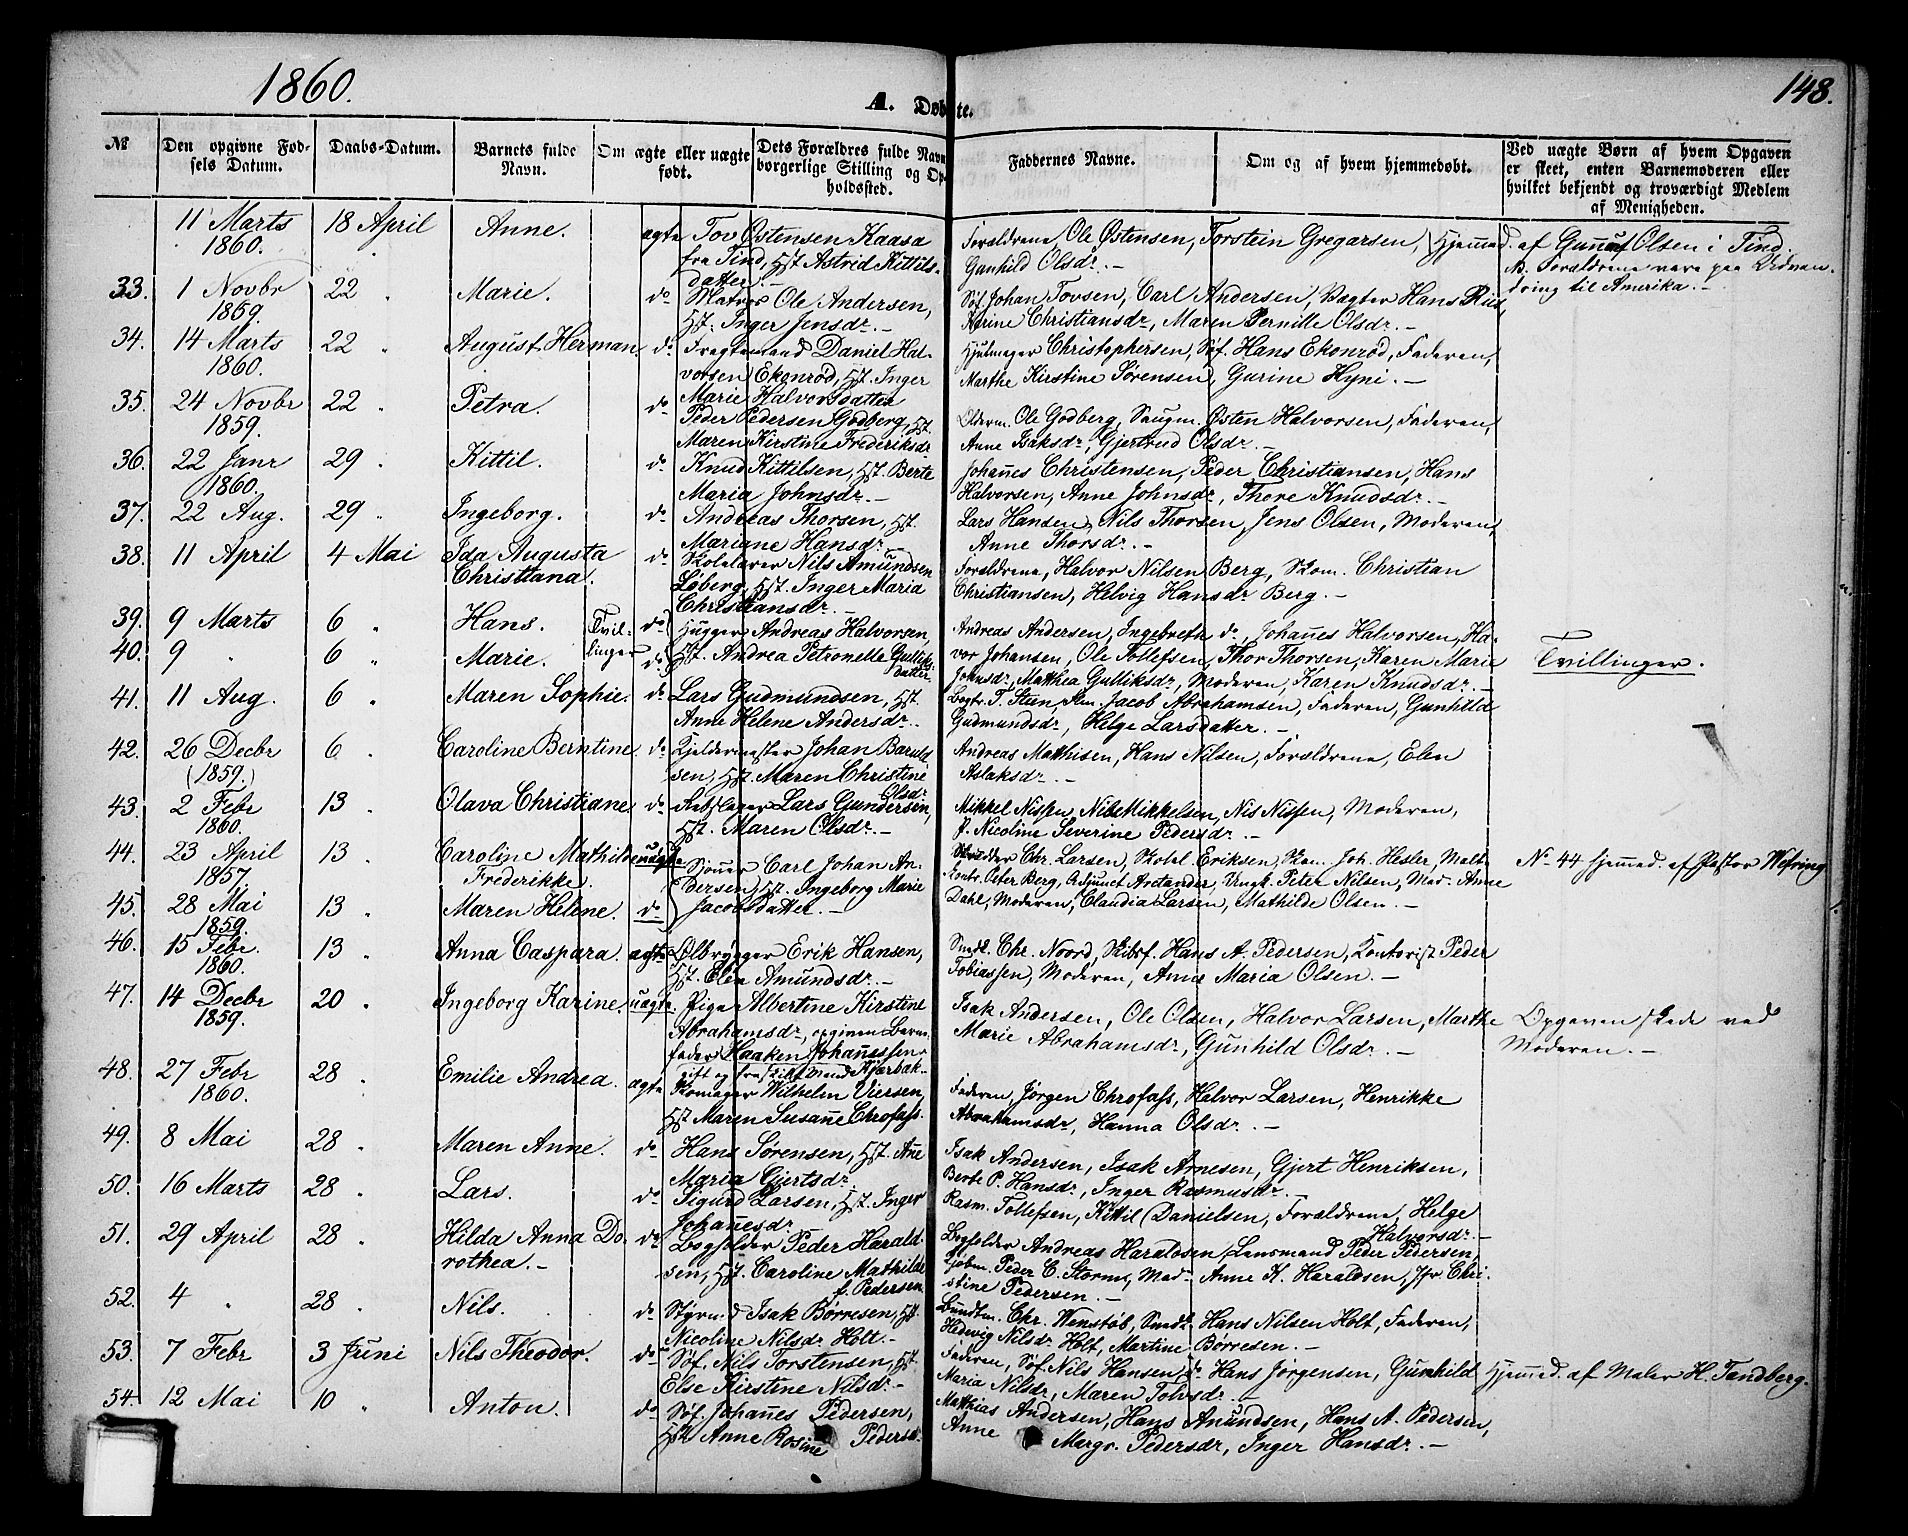 1860.
148.
A. Døbte.
No
Den opgivne Fød-
sels Datum.
Daabs-Datum.
Barnets fulde
Navn.
Om ægte eller uægte
født.
Dets Forældres fulde Navn
borgerlige Stilling og Op-
holdssted.
Faddernes Navne.
Om og af hvem hjemmedøbt.
Ved uægte Børn af hvem Opgaven
er skeet, enten Barnemoderen eller
hvilket bekjendt og troværdigt Medlem
af Menigheden.
11 Marts 1860. 18 April Anne. ægte
Tov Østensen Kaasa
fra Tind, Hst. Astrid Kittils-
datter.-
Forældrene, Ole Østensen, Torstein Gregarsen,
Gunhild Olsdr.-
Hjemmed. af Gunuf Olsen i Tind.
N. Forældrene vare paa Udvan-
dring til Amerika.-
33. 1 Novbr 1859. 22 " Marie. do
Matros Ole Andersen,
Hst. Inger Jensdr.-
Søf. Johan Tovsen, Carl Andersen, Vagter Hans Rue,
Karine Christiansdr, Maren Pernille Olsdr.-
34. 14 Marts 1860. 22 " August Herman do
Fragtemand Daniel Hal-
vorsen Ekonrød, Hst. Inger
Marie Halvorsdatter
Hjulmager Christophersen, Søf. Hans Ekonrød, Faderen,
Marthe Kirstine Sørensen, Gurine Hyni.-
35. 24 Novbr 1859. 22 " Petra. do
Peder Pedersen Godberg, Hst.
Maren Kirstine Frederiksdr
Olderm. Ole Godberg, Saugm. Østen Halvorsen, Faderen,
Anne Isaksdr, Gjertrud Olsdr.-
36. 22 Janr 1860. 29 " Kittil. do
Knud Kittilsen, Hst. Berte
Maria Johnsdr.-
Johannes Christensen, Peder Christiansen, Hans
Halvorsen, Anne Johnsdr, Thore Knudsdr.-
37. 22 Aug. 29 " Ingeborg. do
Andreas Thorsen, Hst.
Mariane Hansdr.-
Lars Hansen, Nils Thorsen, Jens Olsen, Moderen,
Anne Thorsdr.-
38. 11 April 4 Mai Ida Augusta
Christiana. do
Skolelærer Nils Amundsen
Løberg, Hst. Inger Maria
Christiansdr.-
Forældrene, Halvor Nilsen Berg, Skom. Christian
Christiansen, Helvig Hansdr Berg.-
39. 9 Marts 6 " Hans. Tvil- do
40. 9 " 6 " Marie. linger do
Hugger Andreas Halvorsen,
Hst. Andrea Petronelle Gulliks-
datter
Andreas Andersen, Ingebreth do, Johannes Halvorsen, Ha-
vor Johansen, Ole Tollefsen, Thor Thorsen, Karen Marie
Johnsdr, Mathea Gulliksdr, Moderen, Karen Knudsdr.-
Tvillinger.
41. 11 Aug. 6 " Maren Sophie. do
Lars Gudmundsen, Hst.
Anne Helene Andersdr.
Bogtr. T. Steen, Skm. Jacob Abrahamsen, Faderen, Gunhild
Gudmundsdr, Helge Larsdatter.-
42. 26 Decbr (1859.) 6 " Caroline Berntine. do
Kjeldermester Johan Baruld-
sen, Hst. Maren Christine
Olsdr
Andreas Mathisen, Hans Nilsen, Forældrene, Elen
Aslaksdr.-
43. 2 Febr 1860. 13 " Olava Christiane. do
Rebslager Lars Gundersen,
Hst. Maren Olsdr.-
Mikkel Nissen, Nils Mikkelsen, Nis Nissen, Moderen,
P. Nicoline Severine Pedersdr.-
44. 23 April 1857. 13 " Caroline Mathilde
Frederikke. uægte
45. 28 Mai 1859. 13 " Maren Helene. do
Sjouer Carl Johan An-
dersen, Hst. Ingeborg Marie
Jacobsdatter.-
Skrædder Chr. Larsen, Skolel. Eriksen, Skom. Joh. Hesler, Malt-
kontr. Peter Berg, Adjunct Arctander, Ungk. Peter Nilsen, Mad. Anne
Dahl, Moderen, Claudia Larsen, Mathilde Olsen.-
No 44 hjemmed. af Pastor Wefring
46. 15 Febr. 1860. 13 " Anna Caspara. ægte
Ølbrygger Erik Hansen,
Hst. Elen Amundsdr.-
Snedk. Chr. Noord, Skibsf. Hans A. Pedersen, Kontorist Peder
Tobiassen, Moderen, Anne Maria Olsen.-
47. 14 Decbr 1859. 20 " Ingeborg Karine. uægte.
Pige Albertine Kirstine
Abrahamsdr, opgiven Barne-
fader Haaken Johannssen,
gift og fraskilt Mand
Isak Andersen, Ole Olsen, Halvor Larsen, Marthe
Marie Abrahamsdr, Gunhild Olsdr.-
Opgaven skede ved
Moderen.-
48. 27 Febr 1860. 28 " Emilie Andrea. ægte
Skomager Wilhelm Viersen,
Hst. Maren Susanne Chrofass.
Faderen, Jørgen Chrofass, Halvor Larsen, Henrikke
Abrahamsdr, Hanna Olsdr.-
49. 8 Mai 28 " Maren Anne. do
Hans Sørensen, Hst. Ane
Maria Gjertsdr.
Isak Andersen, Isak Arnesen, Gjert Henriksen,
Berte P. Hansdr, Inger Rasmusdr.
50. 16 Marts 28 " Lars. do
Sigurd Larsen, Hst. Inger
Johannesdr
Rasm. Tollefsen, Kittil Danielsen, Forældrene, Helge
Halvorsdr.-
51. 29 April 28 " Hilda Anna Do-
rothea.- do
Bogholder Peder Harald-
sen, Hst. Caroline Mathilde
f. Pedersen
Bogholder Andreas Haraldsen, Lensmand Peder Pedersen,
Gjbm. Peder C. Storm, Mad. Anne K. Haraldsen, Jfr Chri-
stine Pedersen.-
52. 4 " 28 " Nils. do
Styrmd Isak Børresen, Hst.
Nicoline Nilsdr Holt.-
Bundtm. Chr. Wenstøb, Snedk. Hans Nilsen Holt, Faderen,
Hedevig Nilsdr Holt, Martine Børresen.-
53. 7 Febr 3 Juni Nils Theodor. do
Søf. Nils Torstensen, Hst.
Else Kirstine Nilsdr.-
Faderen, Søf. Nils Hansen, do. Hans Jørgensen, Gunhild
Maria Nilsdr, Maren Tolvsdr.-
Hjemmed. af Maler H. Tandberg.
54. 12 Mai 10 " Anton. do
Søf. Johannes Pedersen,
Hst. Anne Rosine Pedersd.
Matthias Andersen, Hans Amundsen, Hans A. Pedersen,
Anne Margr. Pedersdr, Inger Hansdr.-